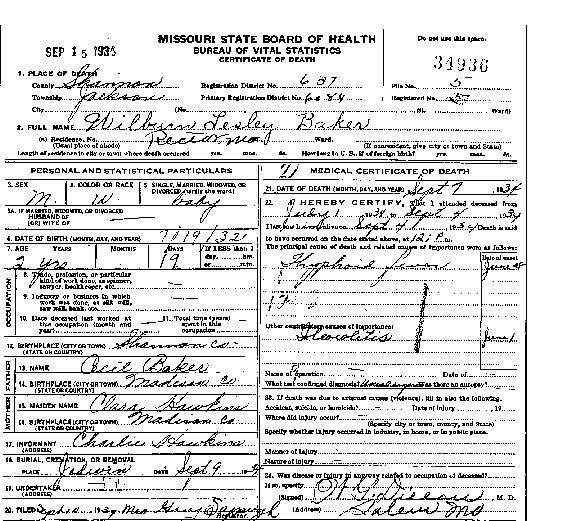 MISSOURI STATE BOARD OF HEALTH
BUREAU OF VITAL STATISTICS
CERTIFICATE OF DEATH
Do not use this space.
SEP 15 1934
34936
1. PLACE OF DEATH
County Shannon Registration District No. 687 File No. 5
Township Jackson Primary Registration District No. Registered No. 5
City (No. St. Ward)
2. FULL NAME Wilburn Lesley Baker
(a) Residence, No. Rector Mo Ward.
(Usual place of abode) (If nonresident, give city or town and State)
Length of residence in city or town where death occurred yrs. mos. ds. How long in U. S., if of foreign birth? yrs. mos. ds.
PERSONAL AND STATISTICAL PARTICULARS
3. SEX 4. COLOR OR RACE 5. SINGLE, MARRIED, WIDOWED, OR DIVORCED (write the word)
M. W baby
5A. IF MARRIED, WIDOWED, OR DIVORCED
HUSBAND OF
(OR) WIFE OF
6. DATE OF BIRTH (MONTH, DAY, AND YEAR) 7/19/32
7. AGE YEARS MONTHS DAYS If LESS than 1 day, hrs. or min.
2 yrs 19
OCCUPATION
8. Trade, profession, or particular kind of work done, as spinner, sawyer, bookkeeper, etc.
9. Industry or business in which work was done, as silk mill, saw mill, bank, etc.
10. Date deceased last worked at this occupation (month and year) 11. Total time (years) spent in this occupation
12. BIRTHPLACE (CITY OR TOWN) Shannon Co
(STATE OR COUNTRY)
FATHER
13. NAME Cecil Baker
14. BIRTHPLACE (CITY OR TOWN) Madison Co
(STATE OR COUNTRY)
MOTHER
15. MAIDEN NAME Clara Hawkins
16. BIRTHPLACE (CITY OR TOWN) Madison Co
(STATE OR COUNTRY)
17. INFORMANT Charlie Hawkins
(ADDRESS)
18. BURIAL, CREMATION, OR REMOVAL
PLACE DATE Sept 9 1934
19. UNDERTAKER
(ADDRESS)
20. FILED Registrar.
MEDICAL CERTIFICATE OF DEATH
21. DATE OF DEATH (MONTH, DAY, AND YEAR) Sept 7 1934
22. I HEREBY CERTIFY, That I attended deceased from
1934 to Sept 4 1934
I last saw h alive on Sept 4 1934 Death is said
to have occurred on the date stated above, at
The principal cause of death and related causes of importance were as follows:
Date of onset
Typhoid fever
Other contributory causes of importance:
Name of operation Date of
What test confirmed diagnosis? Was there an autopsy?
23. If death was due to external causes (violence), fill in also the following:
Accident, suicide, or homicide? Date of injury 19
Where did injury occur?
(Specify city or town, county, and State)
Specify whether injury occurred in industry, in home, or in public place.
Manner of injury
Nature of injury
24. Was disease or injury in any way related to occupation of deceased?
If so, specify
(Signed) M. D.
(Address) Salem Mo